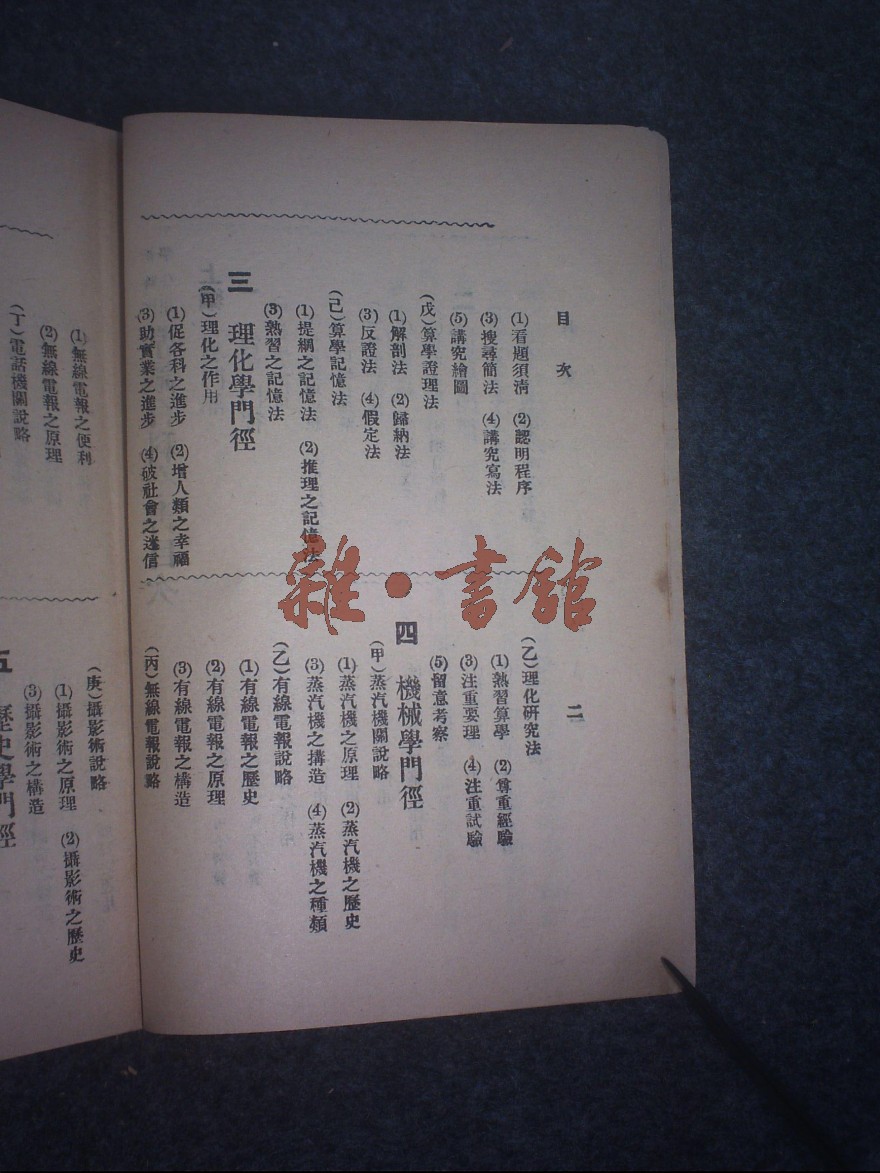 目次
(1)看題須清 (2)認明程序
(3)搜尋簡法 (4)講究寫法
(5)講究繪圖
(戊)算學證理法
(1)解剖法 (2)歸納法
(3)反證法 (4)假定法
(己)算學記憶法
(1)提綱之記憶法 (2)推理之記憶法
(3)熟習之記憶法
三 理化學門徑
(甲)理化之作用
(1)促各科之進步 (2)增人類之幸福
(3)助實業之進步 (4)破社會之迷信
二
(乙)理化研究法
(1)熟習算學 (2)尊重經驗
(3)注重要理 (4)注重試驗
(5)留意考察
四 機械學門徑
(甲)蒸汽機關說略
(1)蒸汽機之原理 (2)蒸汽機之歷史
(3)蒸汽機之搆造 (4)蒸汽機之種類
(乙)有線電報說略
(1)有線電報之歷史
(2)有線電報之原理
(3)有線電報之構造
(丙)無線電報說略
(1)無線電報之便利
(2)無線電報之原理
(丁)電話機關說略
(庚)攝影術說略
(1)攝影術之原理 (2)攝影術之歷史
(3)攝影術之構造
五 歷史學門徑
雜·書館